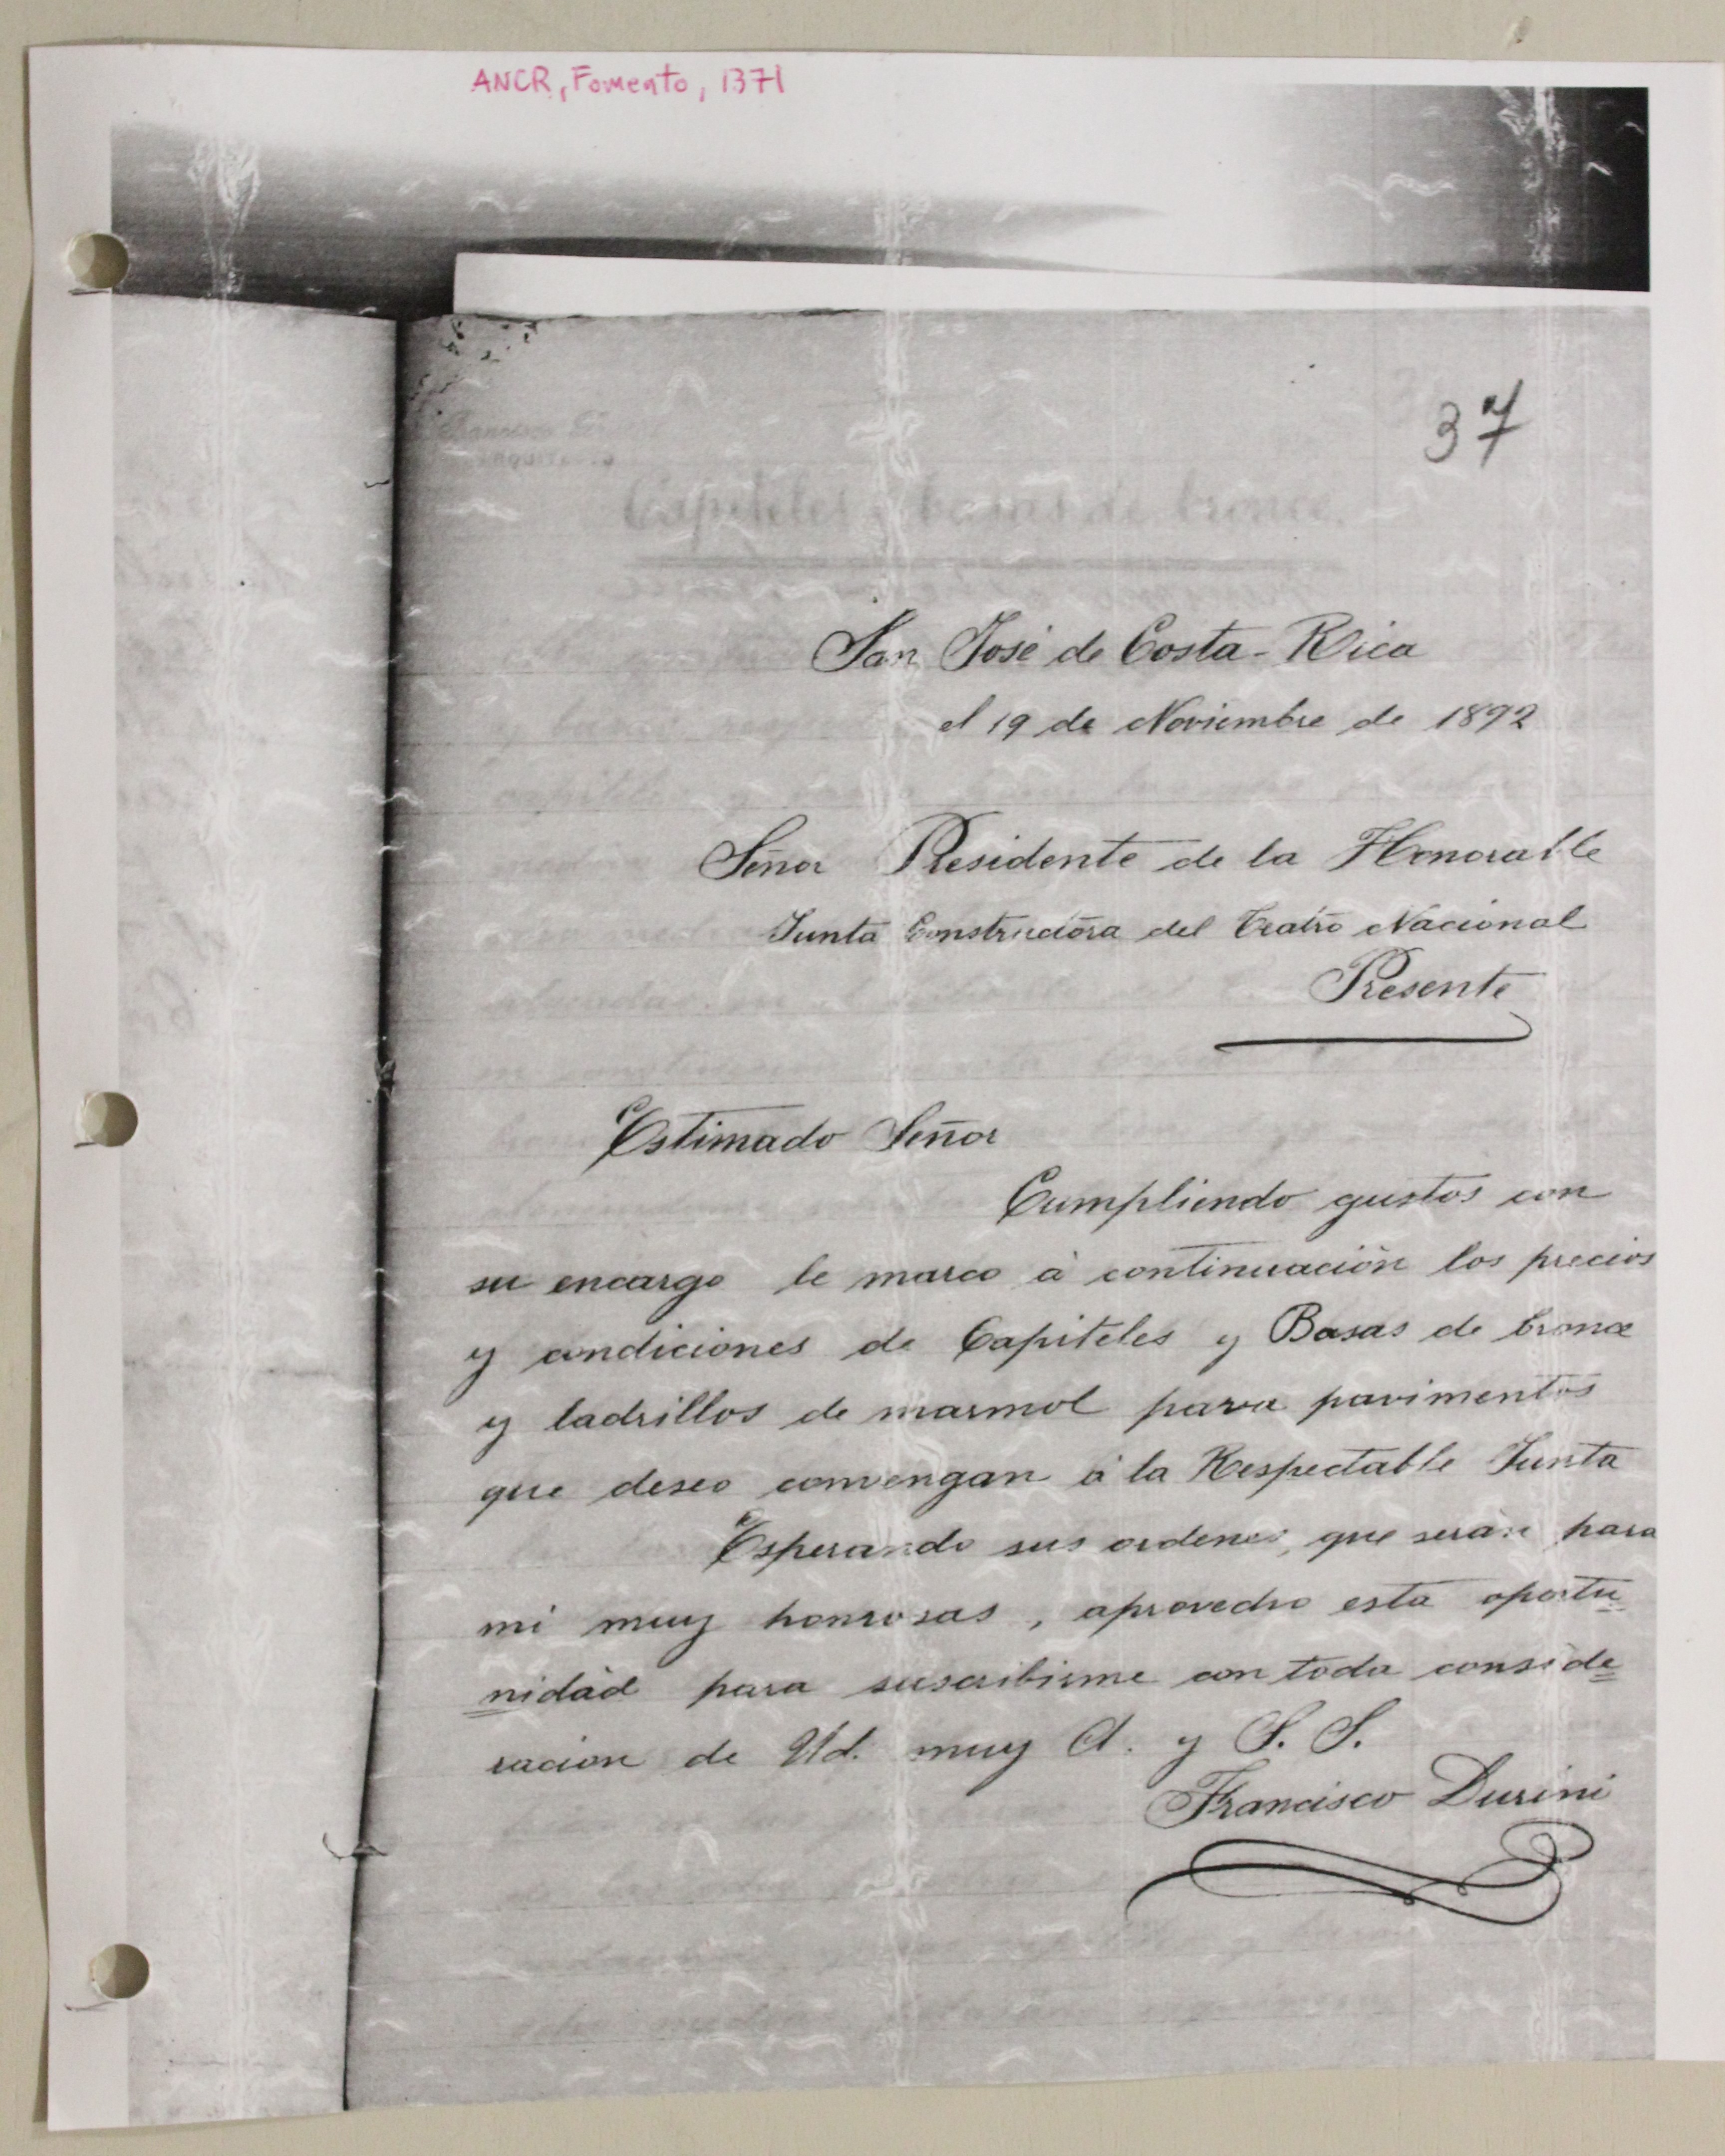 ANCR, Fomento, 1371
37
Capiteles y basas de bronce.
San José de Costa-Rica
el 19 de Noviembre de 1892
Señor Presidente de la Honorable
Junta Constructora del Teatro Nacional
Presente
Estimado Señor
Cumpliendo gustos con
su encargo le marco à continuaciòn los precios
y condiciones de Capiteles y Basas de bronce
y ladrillos de marmol para pavimentos
que deseo convengan à la Respectable Junta
Esperando sus ordenes, que seràn para
mi muy honrosas, aprovecho esta oportu=
nidàd para suscribirme con toda conside=
racion de Ud. muy A. y S. S.
Francisco Durini